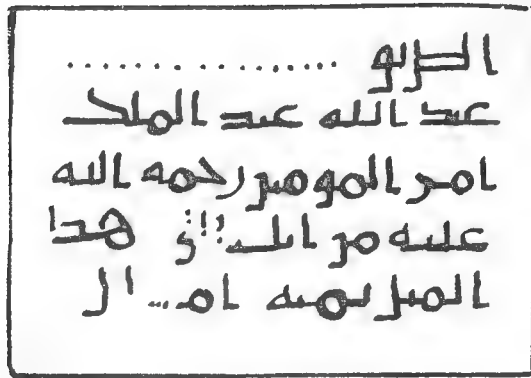 الطريق .................
عبد الله عبد الملك
امير المومنين رحمه الله
عليه من ايليا هذا
الميل ثمنيه امـ...ال